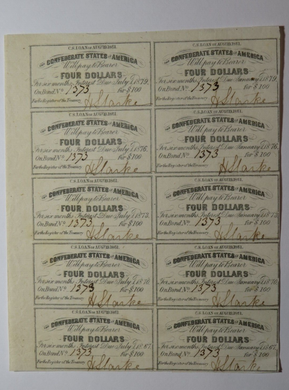 C.S. LOAN OF AUGUST
CONFEDERATE STATES OF AMERICA
Will pay to Bearer
FOUR DOLLARS
For six months Interest Due July 1, 1879.
On Bond No 1373 for $100
For the Register of the Treasury
H Starke
C.S. LOAN OF AUGUST
CONFEDERATE STATES OF AMERICA
Will pay to Bearer
FOUR DOLLARS
For six months Interest Due January 1, 1879
On Bond No 1373 for $100
For the Register of the Treasury
H Starke
C.S. LOAN OF AUGUST
CONFEDERATE STATES OF AMERICA
Will pay to Bearer
FOUR DOLLARS
For six months Interest Due July 1, 1876.
On Bond No 1373 for $100
For the Register of the Treasury
H Starke
C.S. LOAN OF AUGUST
CONFEDERATE STATES OF AMERICA
Will pay to Bearer
FOUR DOLLARS
For six months Interest Due January 1, 1876.
On Bond No 1373 for $100
For the Register of the Treasury
H Starke
C.S. LOAN OF AUGUST
CONFEDERATE STATES OF AMERICA
Will pay to Bearer
FOUR DOLLARS
For six months Interest Due July
On Bond No 1373 for $100
For the Register of the Treasury
H Starke
C.S. LOAN OF AUGUST
CONFEDERATE STATES OF AMERICA
Will pay to Bearer
FOUR DOLLARS
For six months Interest Due January
On Bond No 1373 for $100
For the Register of the Treasury
H Starke
C.S. LOAN OF AUGUST
CONFEDERATE STATES OF AMERICA
Will pay to Bearer
FOUR DOLLARS
For six months Interest Due July
On Bond No 1373 for $100
For the Register of the Treasury
H Starke
C.S. LOAN OF AUGUST
CONFEDERATE STATES OF AMERICA
Will pay to Bearer
FOUR DOLLARS
For six months Interest Due January
On Bond No 1373 for $100
For the Register of the Treasury
H Starke
C.S. LOAN OF AUGUST
CONFEDERATE STATES OF AMERICA
Will pay to Bearer
FOUR DOLLARS
For six months Interest Due July
On Bond No 1373 for $100
C.S. LOAN OF AUGUST
CONFEDERATE STATES OF AMERICA
Will pay to Bearer
FOUR DOLLARS
For six months Interest Due January
On Bond No 1373 for $100
H Starke